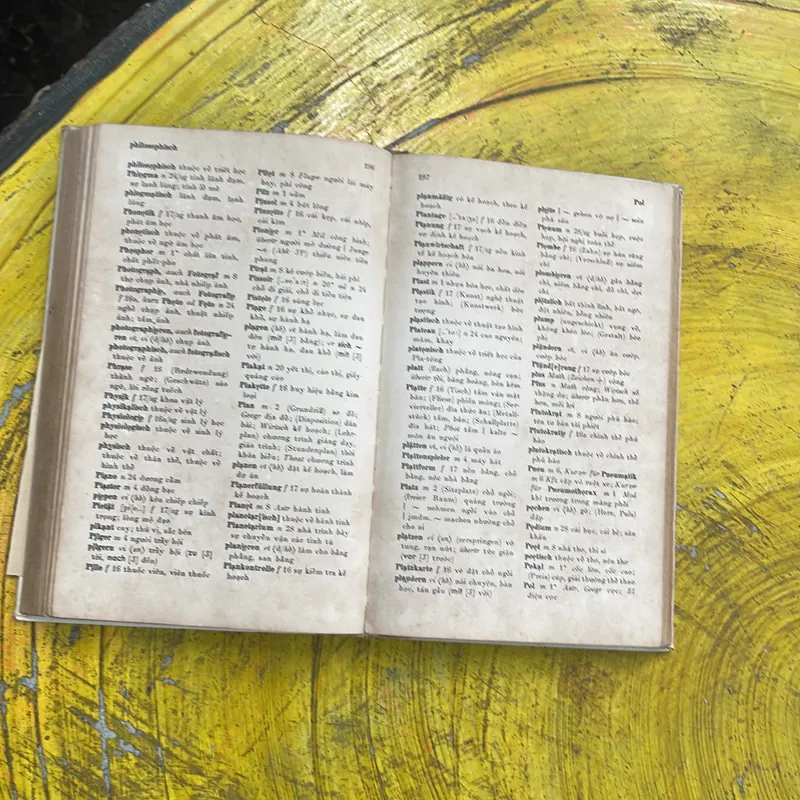 philosophisch
196
philosophisch thuộc về triết học
Phlegma n 24/ig tính lãnh đạm,
sự lạnh lùng; tính lờ mờ
phlegmatisch lãnh đạm, lạnh
lùng
Phonetik f 17/ig thanh âm học,
phát âm học
phonetisch thuộc về phát âm,
thuộc về ngữ âm học
Phosphor m 1* chất lân tinh,
chất phốt-pho
Photograph, auch Fotograf m 8
thợ chụp ảnh, nhà nhiếp ảnh
Photographie, auch Fotografie
f 16a, kurz Photo od Foto n 24
nghề chụp ảnh, thuật nhiếp
ảnh; tấm ảnh
photographieren, auch fotografie-
ren vt, vi (d/hb) chụp ảnh
photographisch, auch fotografisch
thuộc về ảnh
Phrase f 16 (Redewendung)
thành ngữ; (Geschwätz) sáo
ngữ, lời rỗng tuếch
Physik f 17/ig khoa vật lý
physikalisch thuộc về vật lý
Physiologie f 16a/ig sinh lý học
physiologisch thuộc về sinh lý
học
physisch thuộc về vật chất;
thuộc về thân thể, thuộc về
hình thể
Piano n 24 dương cầm
Piaster m 4 đồng bạc
piepen vi (hb) kêu chiếp chiếp
Pietät [pi|e..] f 17/ig sự kính
trọng; lòng mộ đạo
pikant cay; thú vị, sắc bén
Pilger m 4 người trẩy hội
pilgern vi (sn) trẩy hội (zu [3]
tới, nach [3] đến)
Pille f 16 thuốc viên, viên thuốc
Pilot m 8 Flugw người lái máy
bay, phi công
Pilz m 1 nấm
Pinsel m 4 bút lông
Pinzette f 16 cái kẹp, cái nhíp,
cái kìm
Pionier m 1* Mil công binh;
übertr người mở đường | Junge
~e (Abk JP) thiếu niên tiền
phong
Pirat m 8 kẻ cướp biển, hải phỉ
Pissoir n 20* od n 24
chỗ đi giải, chỗ đi tiểu tiện
Pistole f 16 súng lục
Plage f 16 sự khổ nhục, sự đau
khổ, sự hành hạ
plagen vt hành hạ, làm đau
đớn (mit [3] bằng); vr sich ~
tự hành hạ, đau khổ (mit [3]
với)
Plakat n 20 yết thị, cáo thị, giấy
quảng cáo
Plakette f 16 huy hiệu bằng kim
loại
Plan m 2 (Grundriß) sơ đồ;
Geogr địa đồ; (Disposition) dàn
bài; Wirtsch kế hoạch; (Lehr-
plan) chương trình giảng dạy,
giáo trình; (Stundenplan) thời
khóa biểu; Theat chương trình
planen vt (hb) đặt kế hoạch, làm
dự án
Planerfüllung f 17 sự hoàn thành
kế hoạch
Planet m 8 Astr hành tinh
planetar[isch] thuộc về hành tinh
Planetarium n 28 nhà trình bày
sự chuyển vận các tinh tú
planieren vt (d/hb) làm cho bằng
phẳng, san bằng
Plankontrolle f 16 sự kiểm tra kế
hoạch
197
Pol
planmäßig có kế hoạch, theo kế
hoạch
Plantage f 16 đồn điền
Planung f 17 sự vạch kế hoạch,
sự định kế hoạch
Planwirtschaft f 17/ig nền kinh
tế kế hoạch hóa
plappern vi (hb) nói ba hoa, nói
huyên thiên
Plast m 1 nhựa hóa học, chất dẻo
Plastik f 17 (Kunst) nghệ thuật
tạo hình; (Kunstwerk) bức
tượng
plastisch thuộc về thuật tạo hình
Plateau n 24 cao nguyên;
mâm, khay
platonisch thuộc về triết học của
Pla-tông
platt (flach) phẳng, nông cạn;
übertr tồi, bàng hoàng, hèn kém
Platte f 16 (Tisch) tấm ván mặt
bàn; (Fliese) phiến mỏng; (Ser-
vierteller) đĩa thức ăn; (Metall-
stück) tấm, bản; (Schallplatte)
đĩa hát; Phot tấm | kalte ~
món ăn nguội
plätten vt (hb) là quần áo
Plattenspieler m 4 máy hát
Plattform f 17 nền bằng, chỗ
bằng, nóc nhà bằng
Platz m 2 (Sitzplatz) chỗ ngồi;
(freier Raum) quảng trường
| ~ nehmen ngồi vào chỗ
| jmdm. ~ machen nhường chỗ
cho ai
platzen vi (sn) (zerspringen) vỡ
tung, rạn nứt; übertr tức giận
(vor [3] trước)
Platzkarte f 16 vé đặt chỗ ngồi
plaudern vi (hb) nói chuyện, bàn
bạc, tán gẫu (mit [3] với)
pleite | ~ gehen vỡ nợ | ~ sein
phá sản
Plenum n 28/ig buổi họp, cuộc
họp, hội nghị toàn thể
Plombe f 16 (Zahn) sự hàn răng
bằng chì; (Verschluß) sự niêm
chì
plombieren vt (d/hb) gắn bằng
chì, niêm bằng chì, đả chì, đợi
chì
plötzlich bất thình lình, bất ngờ,
đột nhiên, bỗng nhiên
plump (ungeschickt) vụng về,
không khéo léo; (Gestalt) béo
phị
plündern vt, vi (hb) ăn cướp,
cướp bóc
Plünd[e]rung f 17 sự cướp bóc
plus Math (Zeichen +) cộng
Plus n Math cộng; Wirtsch số
thặng dư; übertr phần hơn, thế
hơn, mối lợi
Plutokrat m 8 người phú hào;
tên tư bản tài phiệt
Plutokratie f 16a chính thể phú
hào
plutokratisch thuộc về chính thể
phú hào
Pneu m 6, Kurzw für Pneumatik
m 6 Kfz cặp vỏ ruột xe; Kurzw
für Pneumothorax m 1 Med
khí trong màng phổi
pochen vi (hb) gõ; (Herz, Puls)
đập
Podium n 28 cái bục, cái bệ; sân
khấu
Poet m 8 nhà thơ, thi sĩ
poetisch thuộc về thơ, nên thơ
Pokal m 1* cốc lớn, cốc cao;
(Preis) cúp, giải thưởng thể thao
Pol m 1* Astr, Geogr cực; El
điện cực